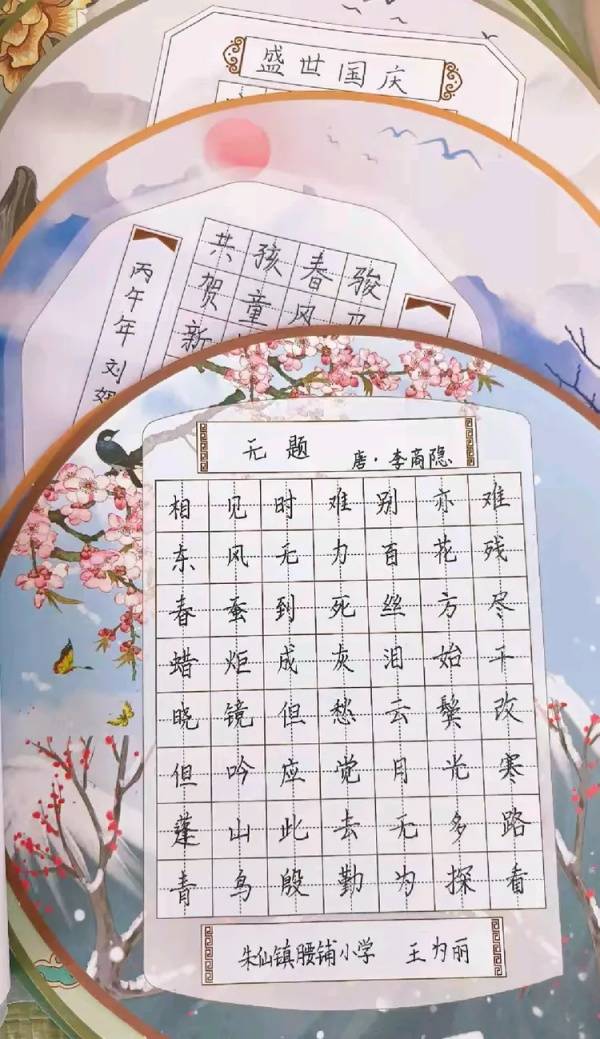 盛世国庆
共孩春骏
贺童风
新
丙午年刘
无题
唐·李商隐
相见时难别亦难
东风无力百花残
春蚕到死丝方尽
蜡炬成灰泪始干
晓镜但愁云鬓改
但吟应觉月光寒
蓬山此去无多路
青鸟殷勤为探看
朱仙镇腰铺小学 王为丽